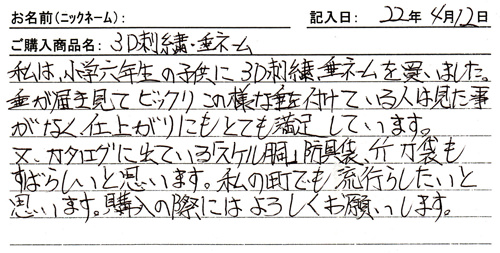 お名前(ニックネーム): 記入日: 22年 4月12日
ご購入商品名: 3D刺繍・垂ネーム
私は、小学六年生の子供に3D刺繍、垂ネームを買いました。
垂が届き見てビックリこの様な垂を付けている人は見た事
がなく仕上がりにもとても満足しています。
又、カタログに出ている「スケル胴」防具袋、竹刀袋も
すばらしいと思います。私の町でも流行らしたいと
思います。購入の際にはよろしくお願いします。